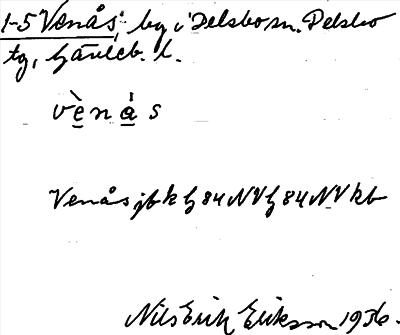 1-5 Venås, by i Delsbo sn. Delsbo
tg, Gävleb. l.
vènás
Venås jbk G 84 NV G 84 NV kb
Nils Erik Eriksson 1936.